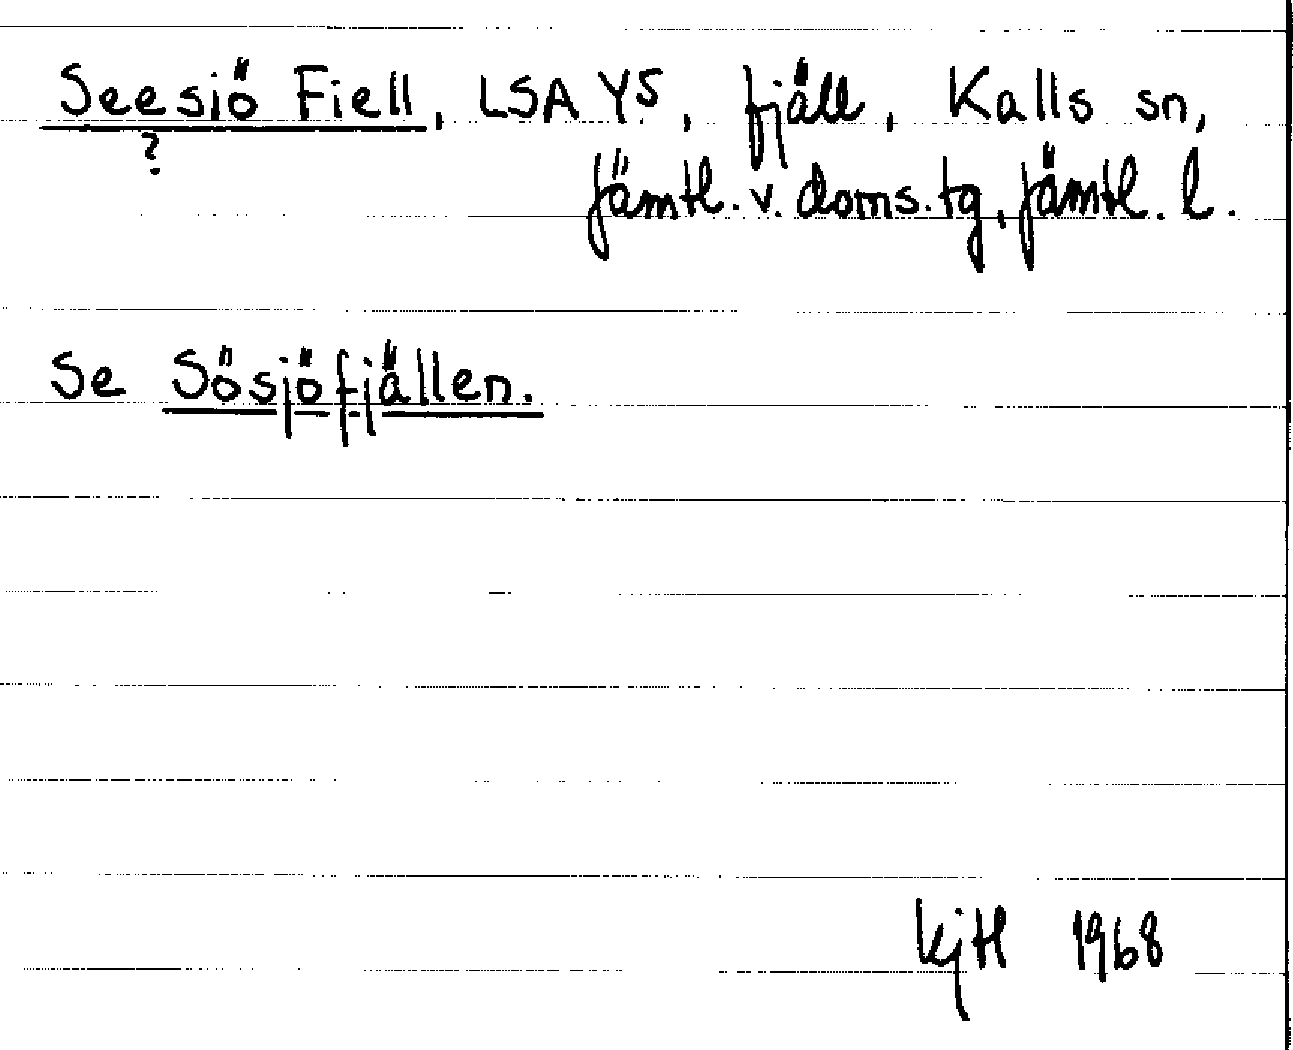 Seesiö Fiell, LSA Y5, fjäll, Kalls sn,
?
Jämtl. v. doms. tg, Jämtl. l.
Se Sösjöfjällen.
KjH 1968